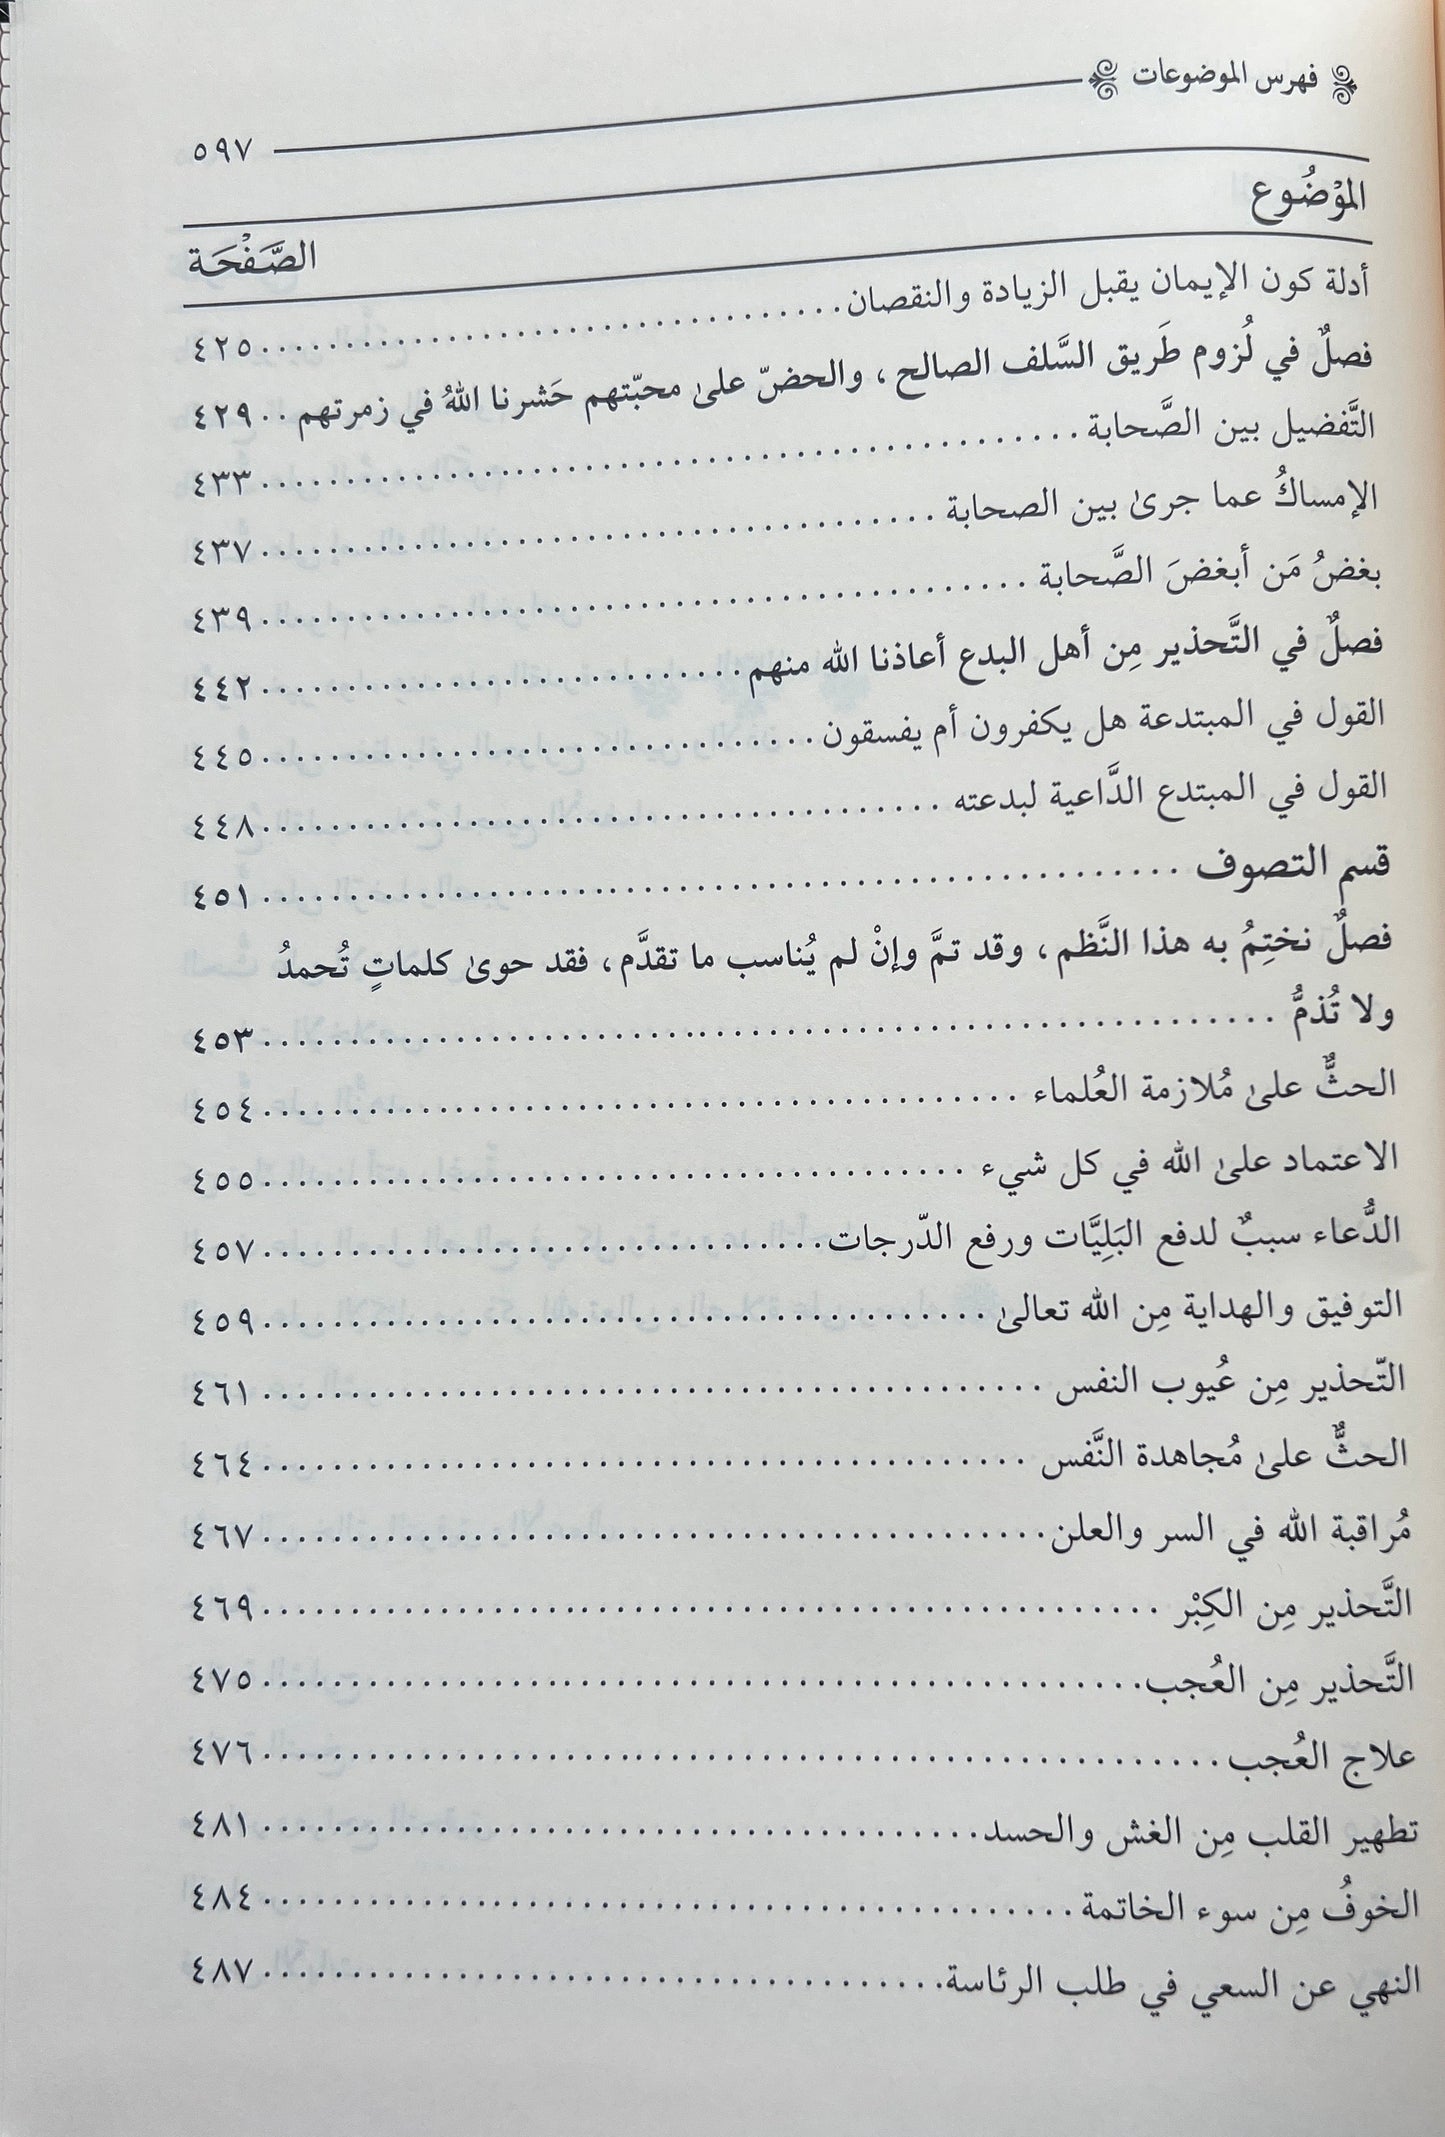 فهرس الموضوعات
٥٩٧
الموْضُوع الصَّفْحَة
أدلة كون الإيمان يقبل الزيادة والنقصان ٤٢٥
فصلٌ في لُزوم طَريق السَّلف الصالح ، والحضّ علىٰ محبّتهم حَشرنا اللهُ في زمرتهم ٤٢٩
التَّفضيل بين الصَّحابة ٤٣٣
الإمساكُ عما جرىٰ بين الصحابة ٤٣٧
بغضُ مَن أبغضَ الصَّحابة ٤٣٩
فصلٌ في التَّحذير مِن أهل البدع أعاذنا الله منهم ٤٤٢
القول في المبتدعة هل يكفرون أم يفسقون ٤٤٥
القول في المبتدع الدَّاعية لبدعته ٤٤٨
قسم التصوف ٤٥١
فصلٌ نختِمُ به هذا النَّظم ، وقد تمَّ وإنْ لم يُناسب ما تقدَّم ، فقد حوىٰ كلماتٍ تُحمدُ
ولا تُذمُّ ٤٥٣
الحثُّ علىٰ مُلازمة العُلماء ٤٥٤
الاعتماد علىٰ الله في كل شيء ٤٥٥
الدُّعاء سببٌ لدفع البَلِيَّات ورفع الدّرجات ٤٥٧
التوفيق والهداية مِن الله تعالىٰ ٤٥٩
التّحذير مِن عُيوب النفس ٤٦١
الحثُّ علىٰ مُجاهدة النَّفس ٤٦٤
مُراقبة الله في السر والعلن ٤٦٧
التَّحذير مِن الكِبْر ٤٦٩
التَّحذير مِن العُجب ٤٧٥
علاج العُجب ٤٧٦
تطهير القلب مِن الغش والحسد ٤٨١
الخوفُ مِن سوء الخاتمة ٤٨٤
النهي عن السعي في طلب الرئاسة ٤٨٧